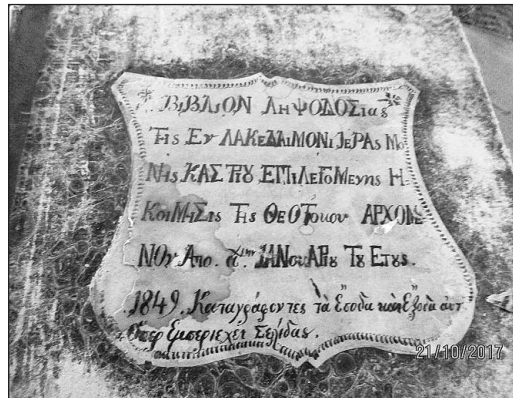 ΒΙΒΛΙΟΝ ΛΗΨΟΔΟΣΙας
Τις Εν ΛΑΚΕΔΑΙΜΟΝΙ ΙΕΡΑς Μο
Νης ΚΑΣΤΡΥ ΕΠΙΛΕΓΟΜΕνης Η
ΚοιΜΗΣΙς Της ΘΕΟΤόκου ΑΡΧΟΜΕ
ΝΟν Απο. α΄ ΙΑΝουΑΡΙȣ Τȣ ΕΤȣς.
1849. Καταγράφοντες τὰ Ἔσοδα καὶ Ἔξοδα αὐτ.
Ὅπερ Ἐμπεριέχει Σελίδας.
21/10/2017